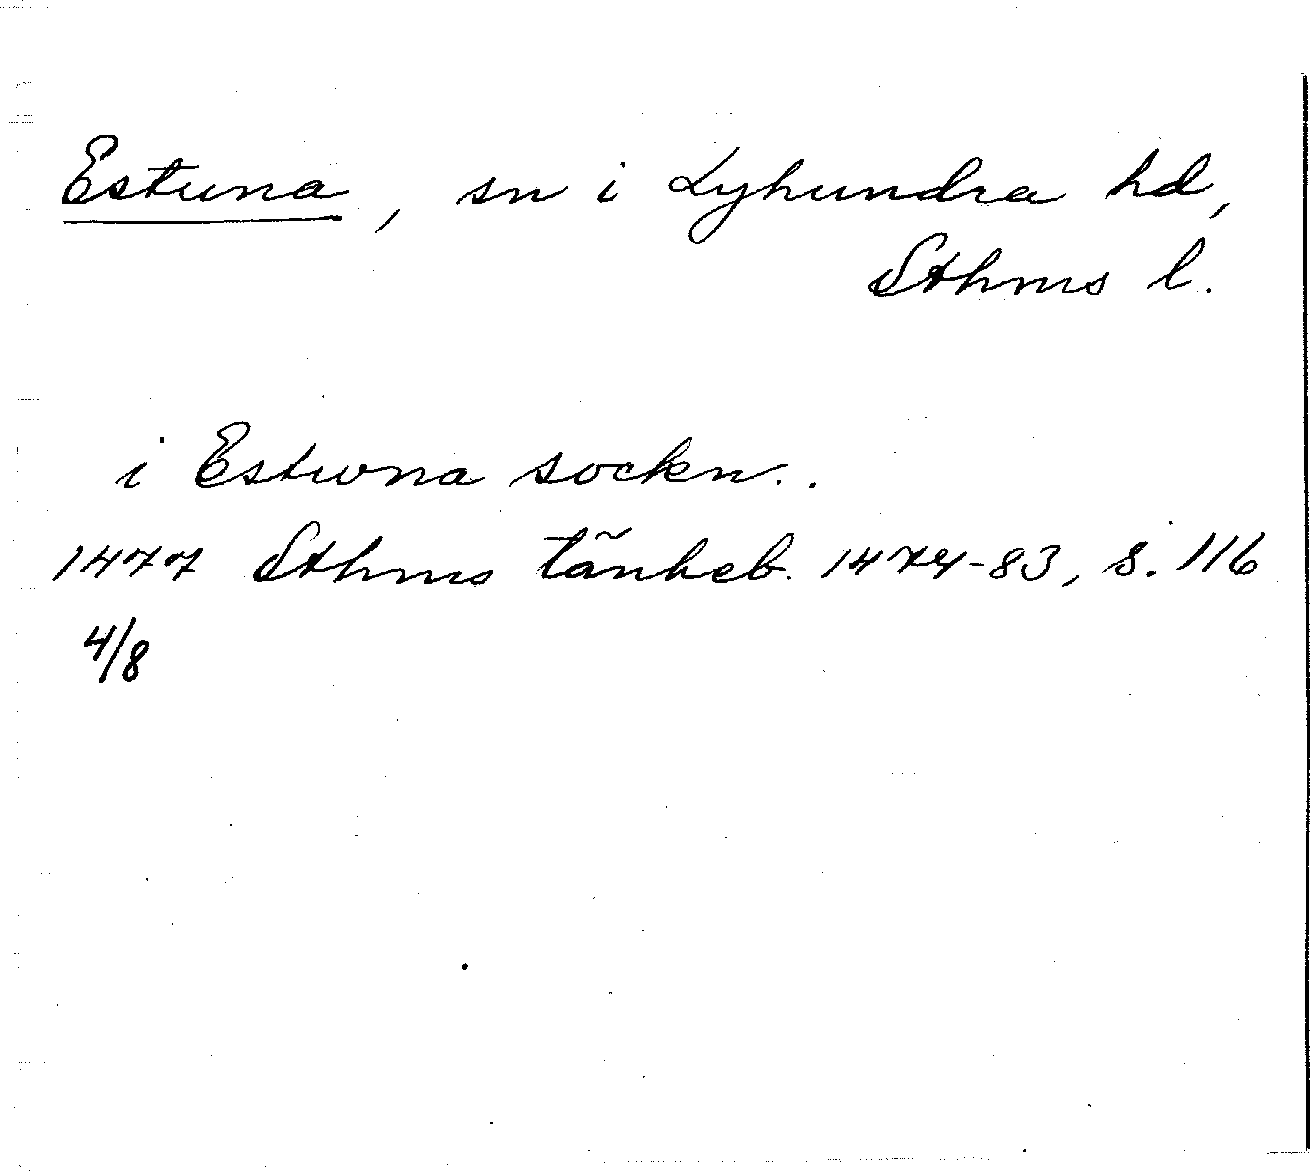 Estuna, sn i Lyhundra hd,
Sthms l.
i Estwna sockn..
1477 Sthms tänkeb. 1474-83, s. 116
4/8